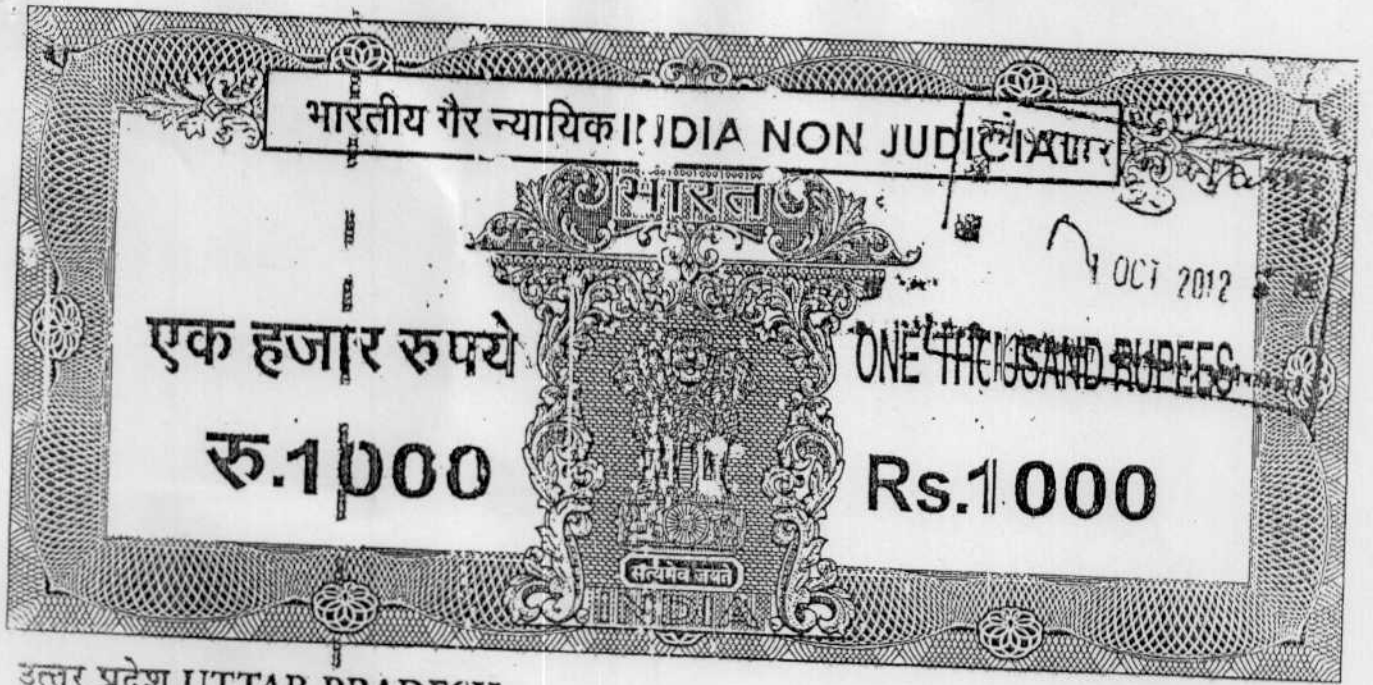 भारतीय गैर न्यायिक INDIA NON JUDICIAL
भारत
OCT 2012
एक हजार रुपये
ONE THOUSAND RUPEES
रु.1000
Rs.1000
सत्यमेव जयते
INDIA
उत्तर प्रदेश UTTAR PRADESH